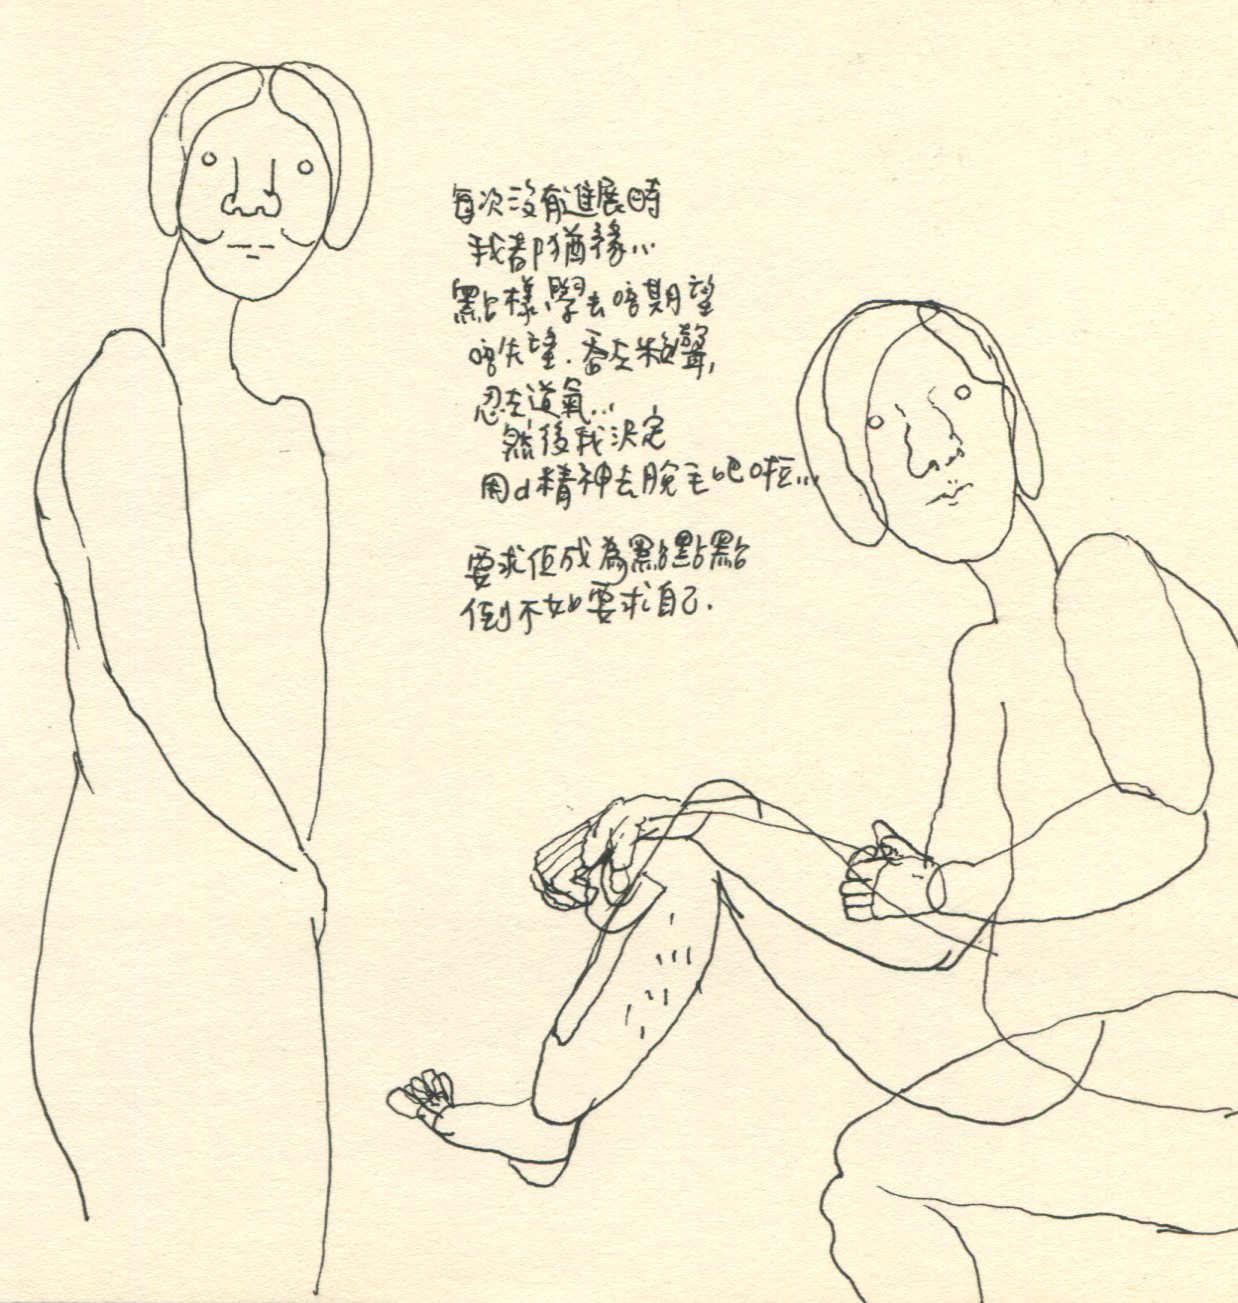 每次沒有進展時
我都猶豫...
點樣學去唔期望
唔失望. 吞左粒聲,
忍左道氣...
然後我決定
用d精神去脫毛吧啦...
要求佢成為點點點
倒不如要求自己.